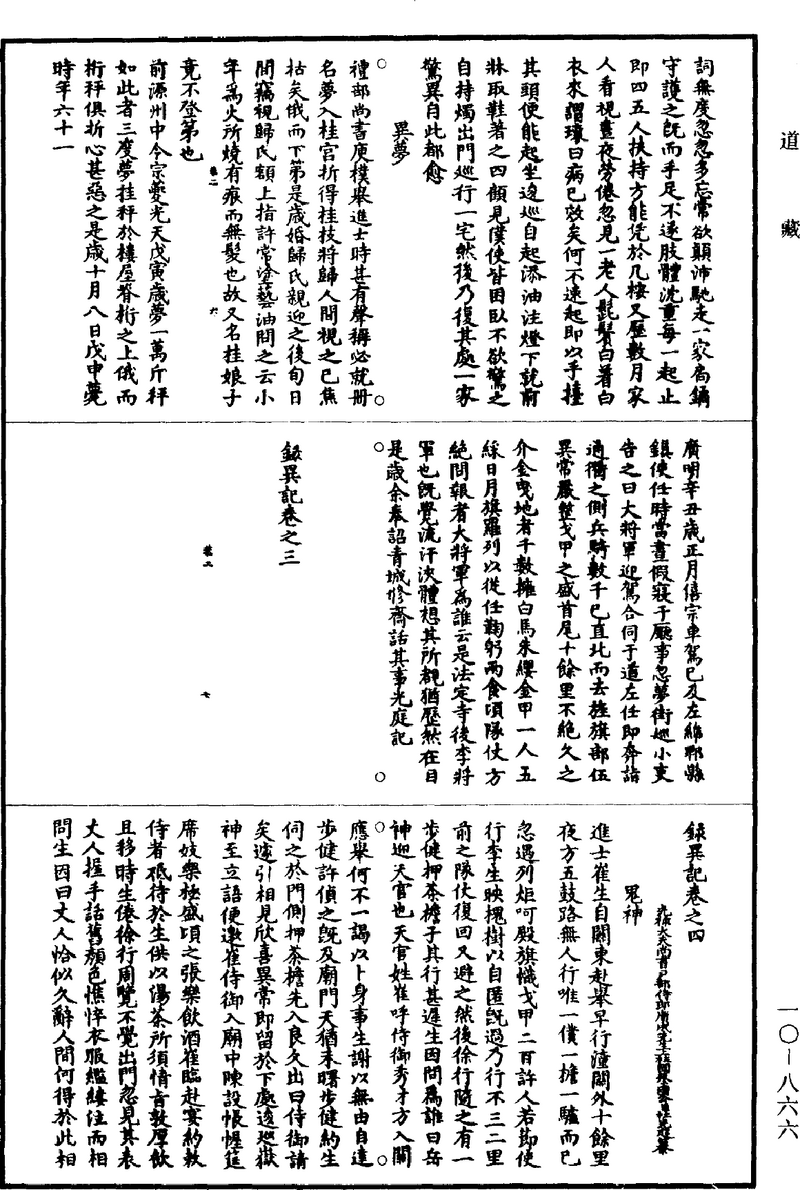 道藏
一〇—八六六
詞無度忽忽多忘常欲顛沛馳走一家扃鎖
守護之既而手足不遂肢體沈重每一起止
即四五人扶持方能凭於几榻又歷數月家
人看視晝夜勞倦忽見一老人髭鬢白著白
衣來謂瓌曰病已效矣何不速起即以手撞
其頭便能起坐逡巡自起添油注燈下就前
牀取鞋著之四顧見僕使皆困臥不欲驚之
自持燭出門巡行一宅然後乃復其處一家
驚異自此都愈
異夢
禮部尚書庾樸舉進士時甚有聲稱必就册
名夢入桂宮折得桂枝將歸人間視之已焦
枯矣俄而下第是歲婚歸氏親迎之後旬日
間竊視歸氏額上指許常塗藝油問之云小
年爲火所燒有痕而無髮也故又名桂娘子
卷二 六
竟不登第也
前源州中令宗夔光天戊寅歲夢一萬斤秤
如此者三度夢挂秤於樓屋脊桁之上俄而
桁秤俱折心甚惡之是歲十月八日戊申薨
時年六十一
廣明辛丑歲正月僖宗車駕已及左綿郫縣
鎮使任時當晝假寢于廳事忽夢街巡小吏
告之曰大將軍迎駕合伺于道左任即奔詣
通衢之側兵騎數千已直北而去旌旗部伍
異常嚴整戈甲之盛首尾十餘里不絕久之
介金曳地者千數擁白馬朱纓金甲一人五
綵日月旗羅列以從任鞠躬兩食頃隊仗方
絕問報者大將軍爲誰云是法定寺後李將
軍也既覺流汗浹體想其所覩猶歷然在目
是歲余奉詔青城修齋話其事光庭記
錄異記卷之三
卷三 七
錄異記卷之四
鬼神
進士崔生自關東赴舉早行潼關外十餘里
夜方五鼓路無人行唯一僕一擔一驢而已
忽遇列炬呵殿旗幟戈甲二百許人若節使
行李生映槐樹以自匿既過乃行不三二里
前之隊仗復回又避之然後徐行隨之有一
步健押茶檐子其行甚遲生因問爲誰曰岳
神迎天官也天官姓崔呼侍御秀才方入關
應舉何不一謁以卜身事生謝以無由自達
步健許偵之既及廟門天猶未曙步健約生
伺之於門側押茶檐先入良久出曰侍御請
矣遽引相見欣喜異常即留於下處逡巡嶽
神至立語便邀崔侍御入廟中陳設帳幄筵
席妓樂極盛頃之張樂飲酒崔臨赴宴約敕
侍者祗待於生供以湯茶所須情旨敦厚飲
且移時生倦徐行周覽不覺出門忽見其表
丈人握手話舊顏色憔悴衣服繿縷泣而相
問生因曰丈人恰似久辭人間何得於此相